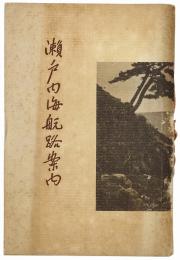 瀬戸内海航路案内